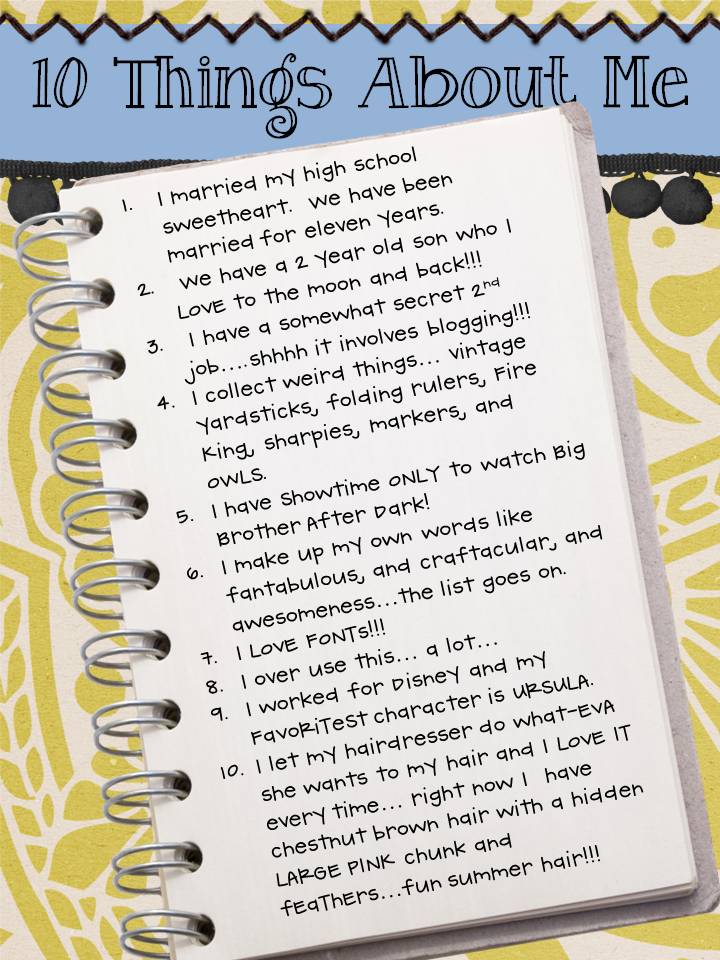 10 Things About Me
1. I married my high school
sweetheart. We have been
married for eleven years.
2. We have a 2 year old son who I
LOVE to the moon and back!!!
3. I have a somewhat secret 2nd
job....shhhh it involves blogging!!!
4. I collect weird things... vintage
yardsticks, folding rulers, Fire
King, sharpies, markers, and
OWLS.
5. I have Showtime ONLY to watch Big
Brother After Dark!
6. I make up my own words like
fantabulous, and craftacular, and
awesomeness...the list goes on.
7. I LOVE FONTs!!!
8. I over use this... a lot...
9. I worked for Disney and my
FavoRiTeST character is URSULA.
10. I let my hairdresser do what-EVA
she wants to my hair and I LOVE IT
every time... right now I have
chestnut brown hair with a hidden
LARGE PINK chunk and
fEaThErs...fun summer hair!!!